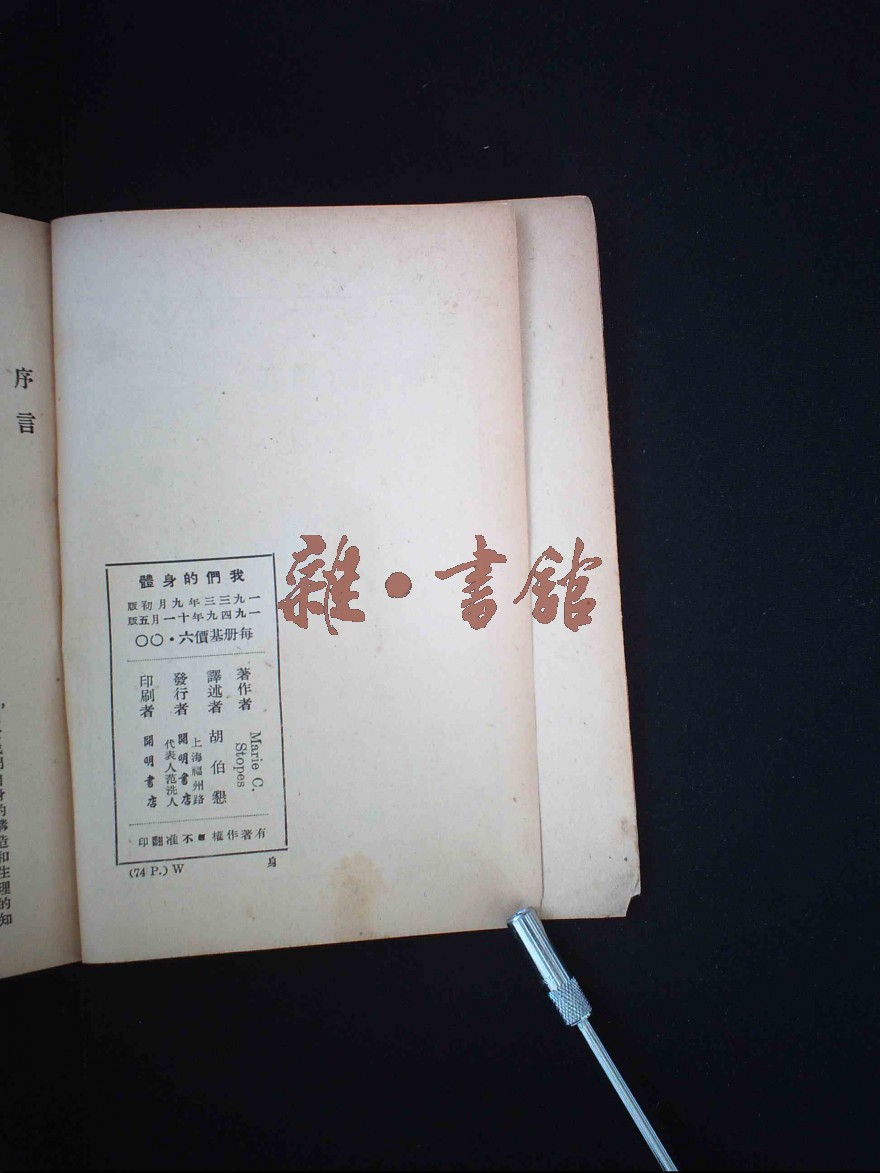 序言
的構造和生理的知
我們的身體
一九三三年九月初版
一九四九年十一月五版
每册基價六・〇〇
著作者 Marie C. Stopes
譯述者 胡伯懇
發行者 上海福州路
開明書店
代表人范洗人
印刷者 開明書店
有著作權 不准翻印
(74 P.) W 身
雜・書館